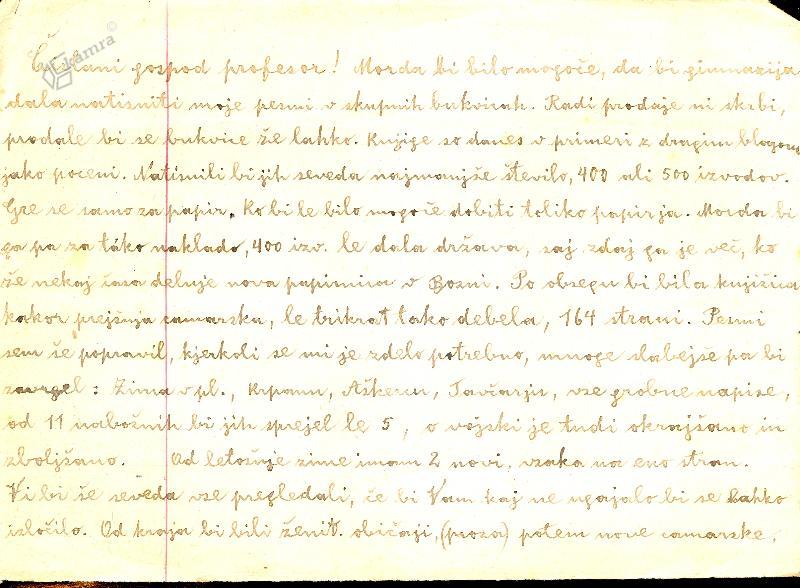 kamra
Čislani gospod profesor! Morda bi bilo mogoče, da bi gimnazija
dala natisniti moje pesmi v skupnih bukvicah. Radi prodaje ni skrbi,
prodale bi se bukvice že lahko. Knjige so danes v primeri z dragim blagom
jako poceni. Natisnili bi jih seveda najmanjše število, 400 ali 500 izvodov.
Gre se samo za papir. Ko bi le bilo mogoče dobiti toliko papirja. Morda bi
ga pa za táko naklado, 400 izv. le dala država, saj zdaj ga je več, ko
že nekaj časa deluje nova papirnica v Bosni. Po obsegu bi bila knjižica
kakor prejšnja camarska, le trikrat tako debela, 164 strani. Pesmi
sem še popravil, kjerkoli se mi je zdelo potrebno, mnoge slabejše pa bi
zavrgel: Zima v pl., Krpanu, Aškercu, Tavčarju, vse grobne napise,
od 11 nabožnih bi jih sprejel le 5, o vojski je tudi okrajšano in
zboljšano. Od letošnje zime imam 2 novi, vsaka na eno stran.
Vi bi še seveda vse pregledali, če bi Vam kaj ne ugajalo bi se lahko
izločilo. Od kraja bi bili ženit. običaji, (proza) potem nove camarske,